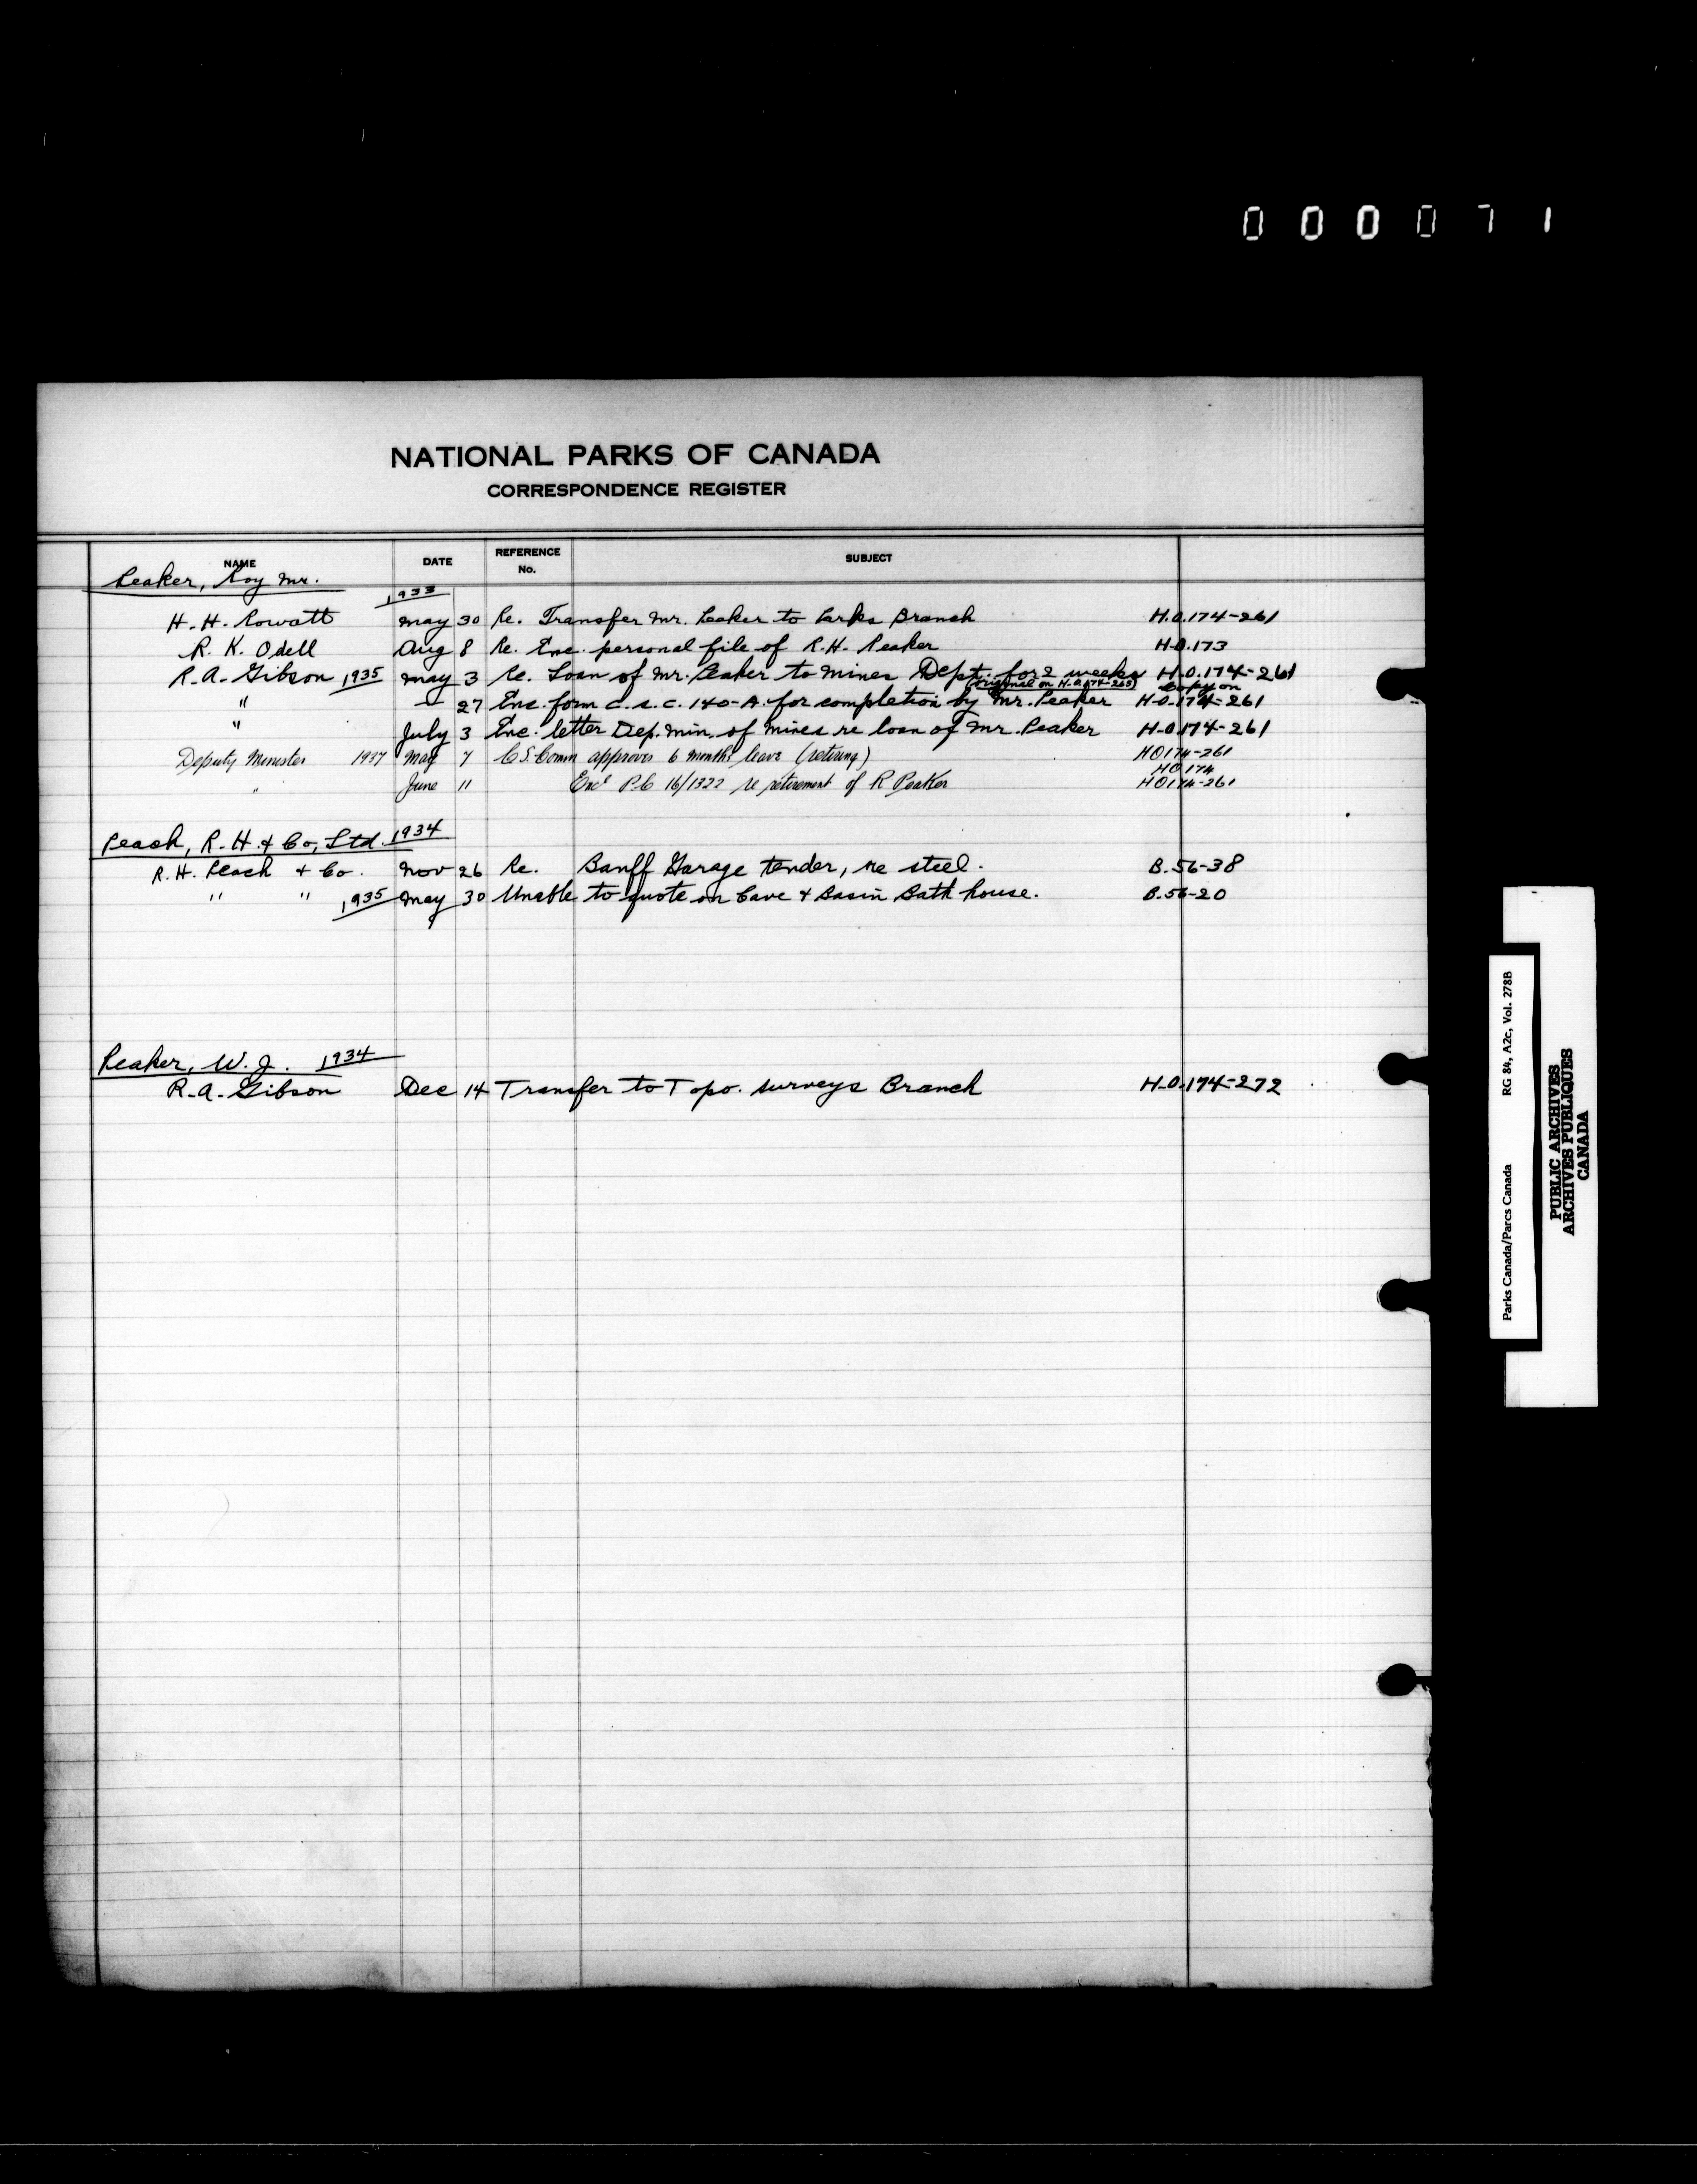 000071
NATIONAL PARKS OF CANADA
CORRESPONDENCE REGISTER
NAME DATE REFERENCE No. SUBJECT
Peaker, Roy Mr.
1933
H. H. Rowatt May 30 Re. Transfer Mr. Peaker to Parks Branch H.O.174-261
R. K. Odell Aug 8 Re. Enc. personal file of R.H. Peaker H.O.173
R.A. Gibson 1935 May 3 Re. Loan of Mr. Peaker to Mines Dept. for 2 weeks H.O.174-261
(original on H.O.174-265) Copy on
" — 27 Enc. form C.S.C. 140-A. for completion by Mr. Peaker H.O.174-261
" July 3 Enc. letter Dep. Min. of Mines re loan of Mr. Peaker H.O.174-261
Deputy Minister 1937 May 7 C.S. Comm approves 6 months leave (retiring) HO174-261
HO174
" June 11 Encl P.C 16/1322 re retirement of R Peaker HO174-261
Peach, R.H. & Co, Ltd. 1934
R.H. Peach & Co. Nov 26 Re. Banff Garage tender, re steel. B.56-38
" " 1935 May 30 Unable to quote on Cave & Basin Bath house. B.56-20
Peaker, W.J. 1934
R.A. Gibson Dec 14 Transfer to Topo. surveys Branch H.O.174-272
Parks Canada/Parcs Canada RG 84, A2c, Vol. 278B
PUBLIC ARCHIVES
ARCHIVES PUBLIQUES
CANADA